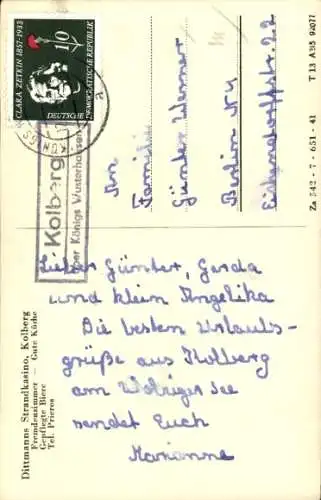 CLARA ZETKIN 1857-1933
10
DEUTSCHE
DEMOKRATISCHE REPUBLIK
Kolberg
über Königs Wusterhausen
An
Familie
Günter Werner
Berlin N4
Lieber Günter, Gerda
und klein Angelika
Die besten Urlaubs-
grüße aus Kolberg
am Wolziger See
sendet Euch
Marianne
Dittmanns Strandkasino, Kolberg
Fremdenzimmer — Gute Küche
Gepflegte Biere
Tel. Prieros
Za 542-7-651-41
T 13 A 85 92077